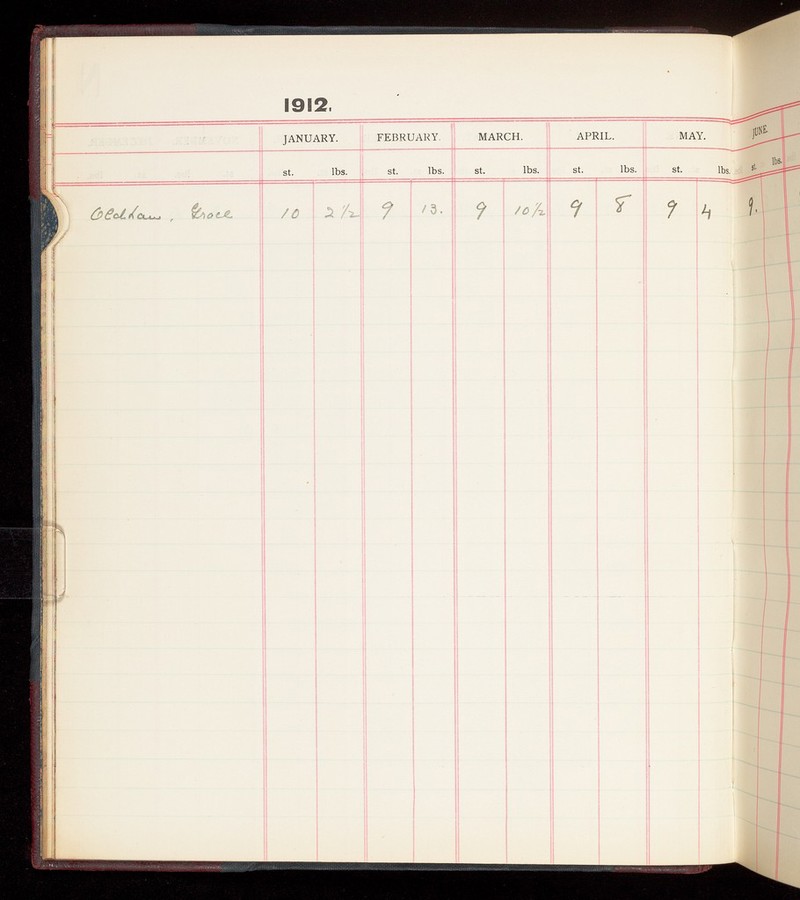 1912.
JANUARY. FEBRUARY. MARCH. APRIL. MAY. JUNE.
st. lbs. st. lbs. st. lbs. st. lbs. st. lbs. st. lbs.
Oldham, Grace 10 2 1/2 9 13. 9 10 1/2 9 8 9 4 9.